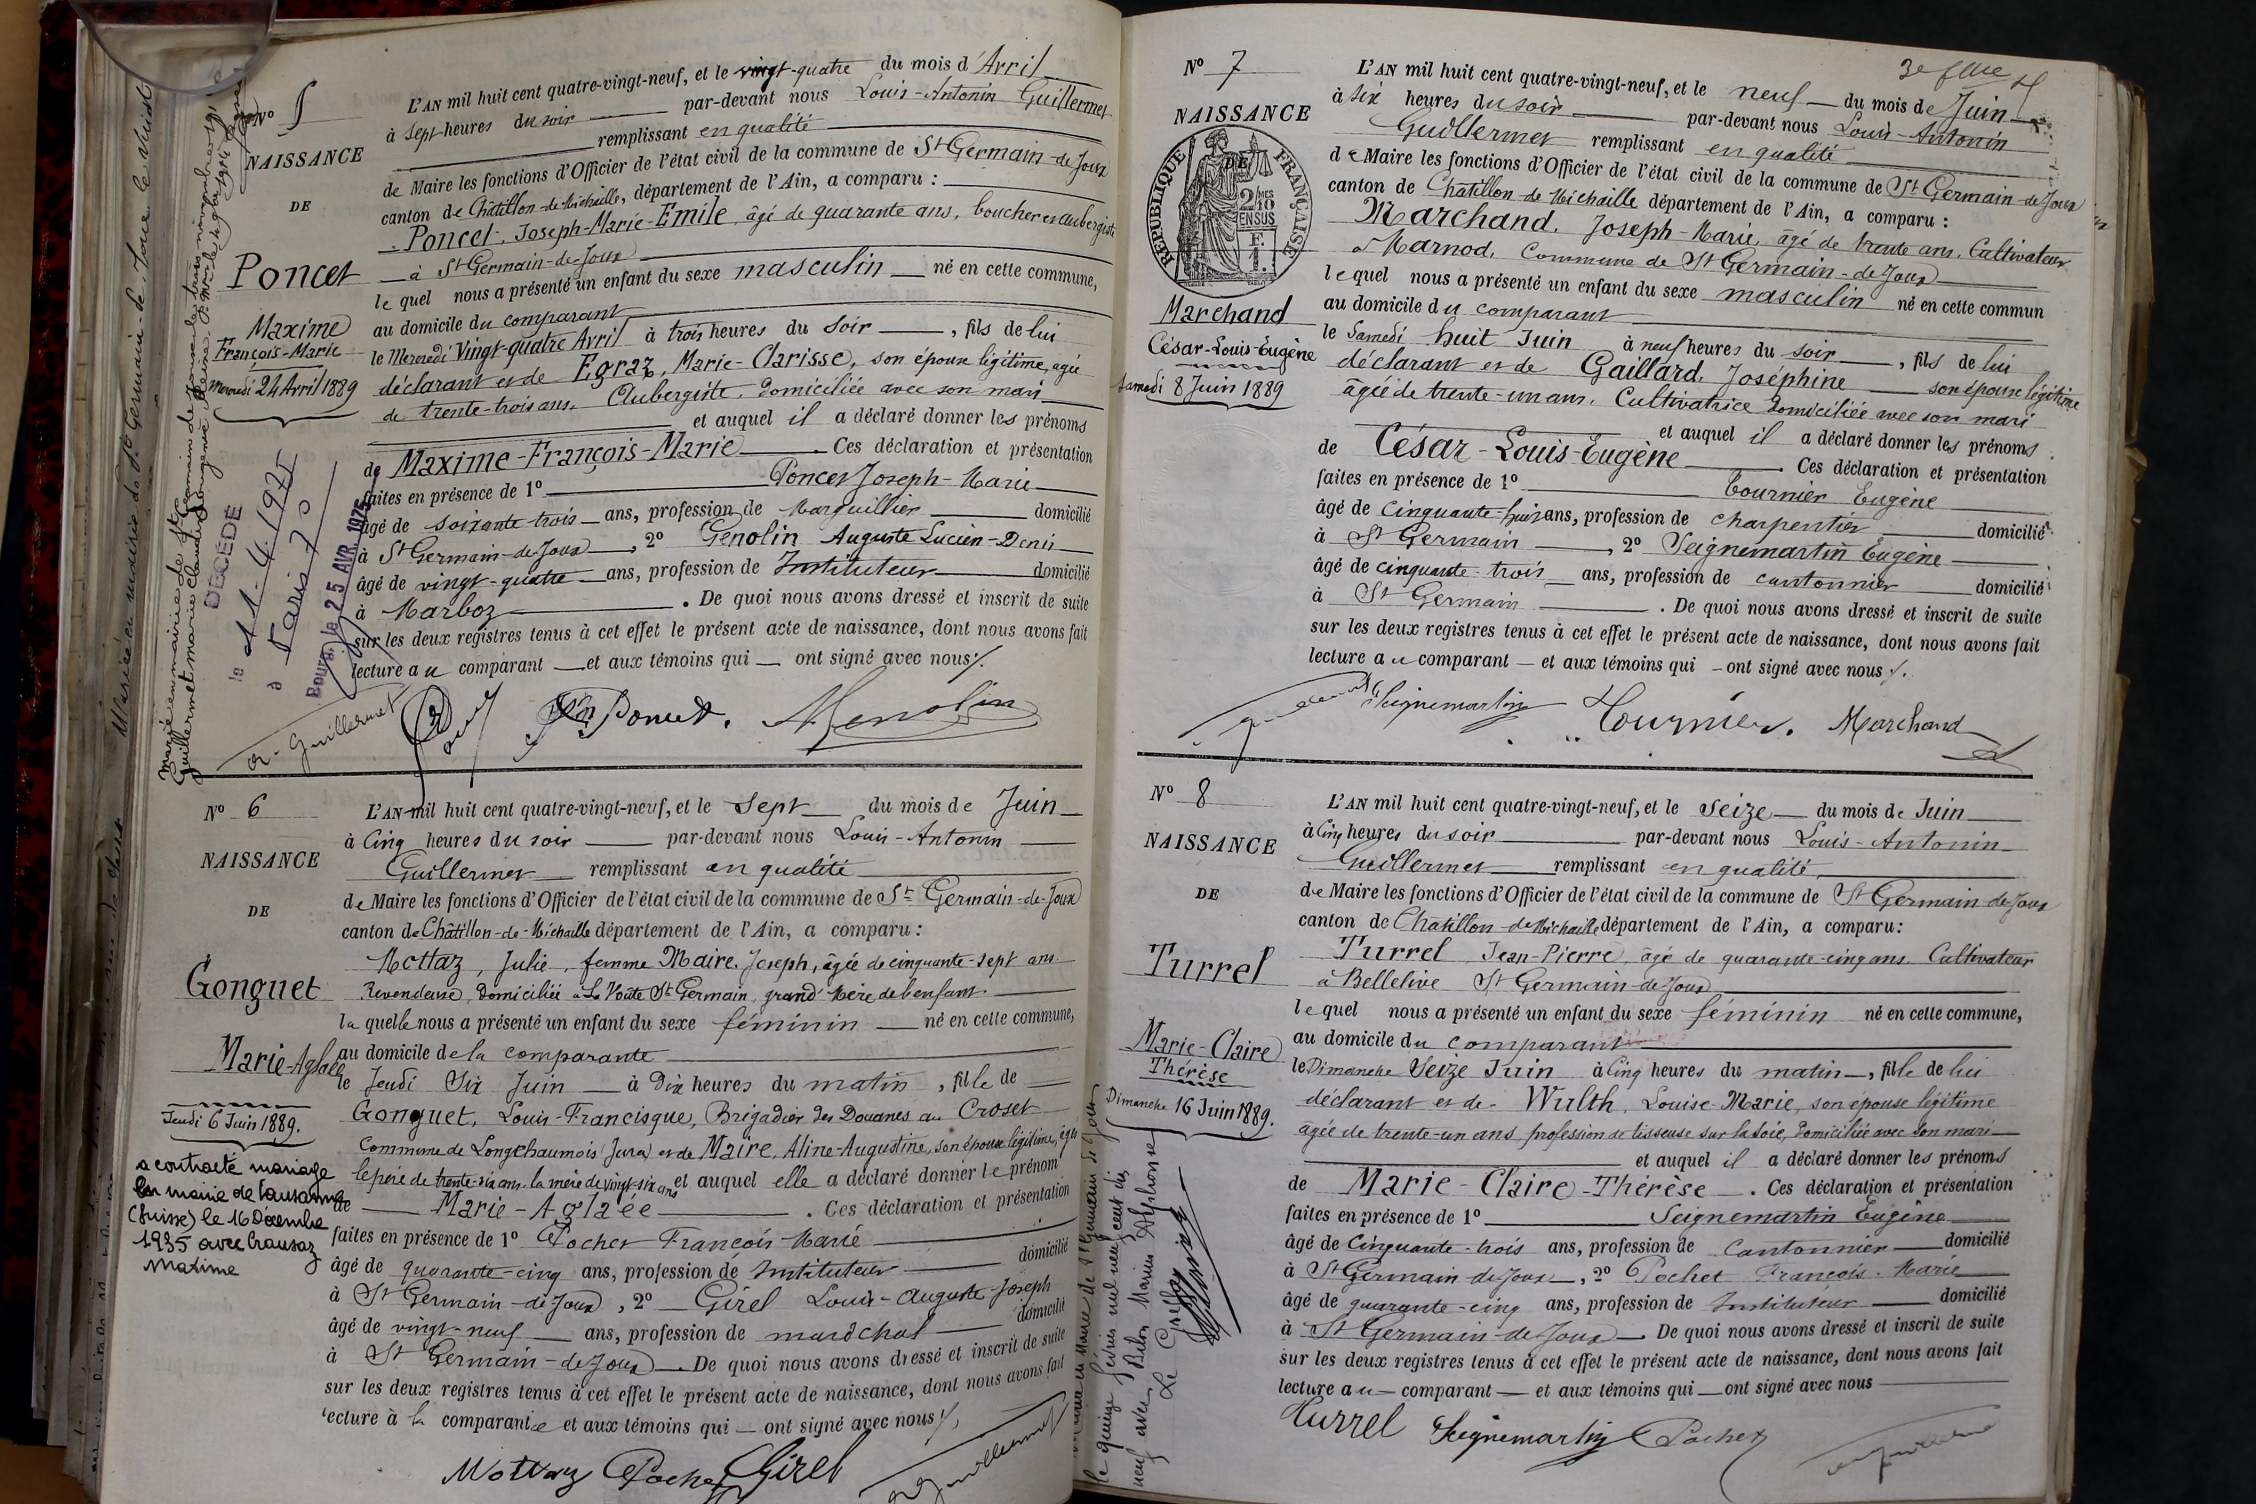 N° 5
NAISSANCE
DE
Poncet
Maxime
François-Marie
Mercredi 24 Avril 1889
L'AN mil huit cent quatre-vingt-neuf, et le vingt-quatre du mois d'Avril
à sept heures du soir par-devant nous Louis-Antonin Guillermet
remplissant en qualité
de Maire les fonctions d'Officier de l'état civil de la commune de St Germain-de-Joux
canton de Châtillon-de-Michaille, département de l'Ain, a comparu :
Poncet, Joseph-Marie-Emile, âgé de quarante ans, boucher et aubergiste
à St Germain-de-Joux
lequel nous a présenté un enfant du sexe masculin né en cette commune,
au domicile du comparant
le Mercredi Vingt-quatre Avril à trois heures du soir, fils de lui
déclarant et de Egraz, Marie-Clarisse, son épouse légitime, agée
de trente-trois ans, Aubergiste, domiciliée avec son mari
et auquel il a déclaré donner les prénoms
de Maxime-François-Marie. Ces déclaration et présentation
faites en présence de 1° Poncet Joseph-Marie
âgé de soixante-trois ans, profession de Marguillier domicilié
à St Germain-de-Joux, 2° Genolin Auguste Lucien-Denis
âgé de vingt-quatre ans, profession de Instituteur domicilié
à Marboz. De quoi nous avons dressé et inscrit de suite
sur les deux registres tenus à cet effet le présent acte de naissance, dont nous avons fait
lecture au comparant et aux témoins qui ont signé avec nous
DÉCÉDÉ
le 11-4-1975
à Paris 7
Bourg, le 25 AVR. 1975
Guillermet Poncet. Genolin
N° 6
NAISSANCE
DE
Gonguet
Marie-Aglaée
Jeudi 6 Juin 1889.
a contracté mariage
en mairie de Lausanne
(Suisse) le 16 Décembre
1935 avec Crausaz
Maxime
L'AN mil huit cent quatre-vingt-neuf, et le Sept du mois de Juin
à Cinq heures du soir par-devant nous Louis-Antonin
Guillermet remplissant en qualité
de Maire les fonctions d'Officier de l'état civil de la commune de St Germain-de-Joux
canton de Châtillon-de-Michaille département de l'Ain, a comparu :
Mottaz, Julie, femme Maire, Joseph, âgée de cinquante-sept ans
Revendeuse, Domiciliée à La Voûte St Germain, grand'mère de l'enfant.
laquelle nous a présenté un enfant du sexe féminin né en cette commune,
au domicile de la comparante
le Jeudi Six Juin à Dix heures du matin, fille de
Gonguet, Louis-Francisque, Brigadier des Douanes au Croset
Commune de Longchaumois (Jura) et de Maire, Aline-Augustine, son épouse légitime, âgés
le père de trente-six ans, la mère de vingt-six ans et auquel elle a déclaré donner le prénom
de Marie-Aglaée. Ces déclaration et présentation
faites en présence de 1° Pochet François-Marie
âgé de quarante-cinq ans, profession de Instituteur domicilié
à St Germain-de-Joux, 2° Girel Louis-Auguste-Joseph
âgé de vingt-neuf ans, profession de maréchal domicilié
à St Germain-de-Joux. De quoi nous avons dressé et inscrit de suite
sur les deux registres tenus à cet effet le présent acte de naissance, dont nous avons fait
lecture à la comparante et aux témoins qui ont signé avec nous
Mottaz Pochet Girel Guillermet
3e flle
N° 7
NAISSANCE
DE
RÉPUBLIQUE FRANÇAISE
2/10mes
EN SUS
F. 1.
Marchand
César-Louis-Eugène
Samedi 8 Juin 1889
L'AN mil huit cent quatre-vingt-neuf, et le neuf du mois de Juin
à six heures du soir par-devant nous Louis-Antonin
Guillermet remplissant en qualité
de Maire les fonctions d'Officier de l'état civil de la commune de St Germain-de-Joux
canton de Châtillon-de-Michaille département de l'Ain, a comparu :
Marchand, Joseph-Marie, âgé de trente ans, Cultivateur
à Marnod, Commune de St Germain-de-Joux
lequel nous a présenté un enfant du sexe masculin né en cette commun
au domicile du comparant
le Samedi huit Juin à neuf heures du soir, fils de lui
déclarant et de Gaillard, Joséphine son épouse légitime
âgée de trente-un ans, Cultivatrice domiciliée avec son mari
et auquel il a déclaré donner les prénoms
de César-Louis-Eugène. Ces déclaration et présentation
faites en présence de 1° Tournier Eugène
âgé de cinquante-huit ans, profession de charpentier domicilié
à St Germain, 2° Seignemartin Eugène
âgé de cinquante-trois ans, profession de cantonnier domicilié
à St Germain. De quoi nous avons dressé et inscrit de suite
sur les deux registres tenus à cet effet le présent acte de naissance, dont nous avons fait
lecture au comparant et aux témoins qui ont signé avec nous
Seignemartin Tournier. Marchand
N° 8
NAISSANCE
DE
Turrel
Marie-Claire
Thérèse
Dimanche 16 Juin 1889.
L'AN mil huit cent quatre-vingt-neuf, et le Seize du mois de Juin
à Cinq heures du soir par-devant nous Louis-Antonin
Guillermet remplissant en qualité
de Maire les fonctions d'Officier de l'état civil de la commune de St Germain-de-Joux
canton de Châtillon-de-Michaille département de l'Ain, a comparu :
Turrel Jean-Pierre, âgé de quarante-cinq ans, Cultivateur
à Bellerive St Germain-de-Joux
lequel nous a présenté un enfant du sexe féminin né en cette commune,
au domicile du comparant
le Dimanche Seize Juin à Cinq heures du matin, fille de lui
déclarant et de Wulth, Louise-Marie, son épouse légitime
agée de trente-un ans, profession de tisseuse sur la soie, domiciliée avec son mari
et auquel il a déclaré donner les prénoms
de Marie-Claire-Thérèse. Ces déclaration et présentation
faites en présence de 1° Seignemartin Eugène
âgé de Cinquante-trois ans, profession de Cantonnier domicilié
à St Germain-de-Joux, 2° Pochet François-Marie
âgé de quarante-cinq ans, profession de Instituteur domicilié
à St Germain-de-Joux. De quoi nous avons dressé et inscrit de suite
sur les deux registres tenus à cet effet le présent acte de naissance, dont nous avons fait
lecture au comparant et aux témoins qui ont signé avec nous
Turrel Seignemartin Pochet